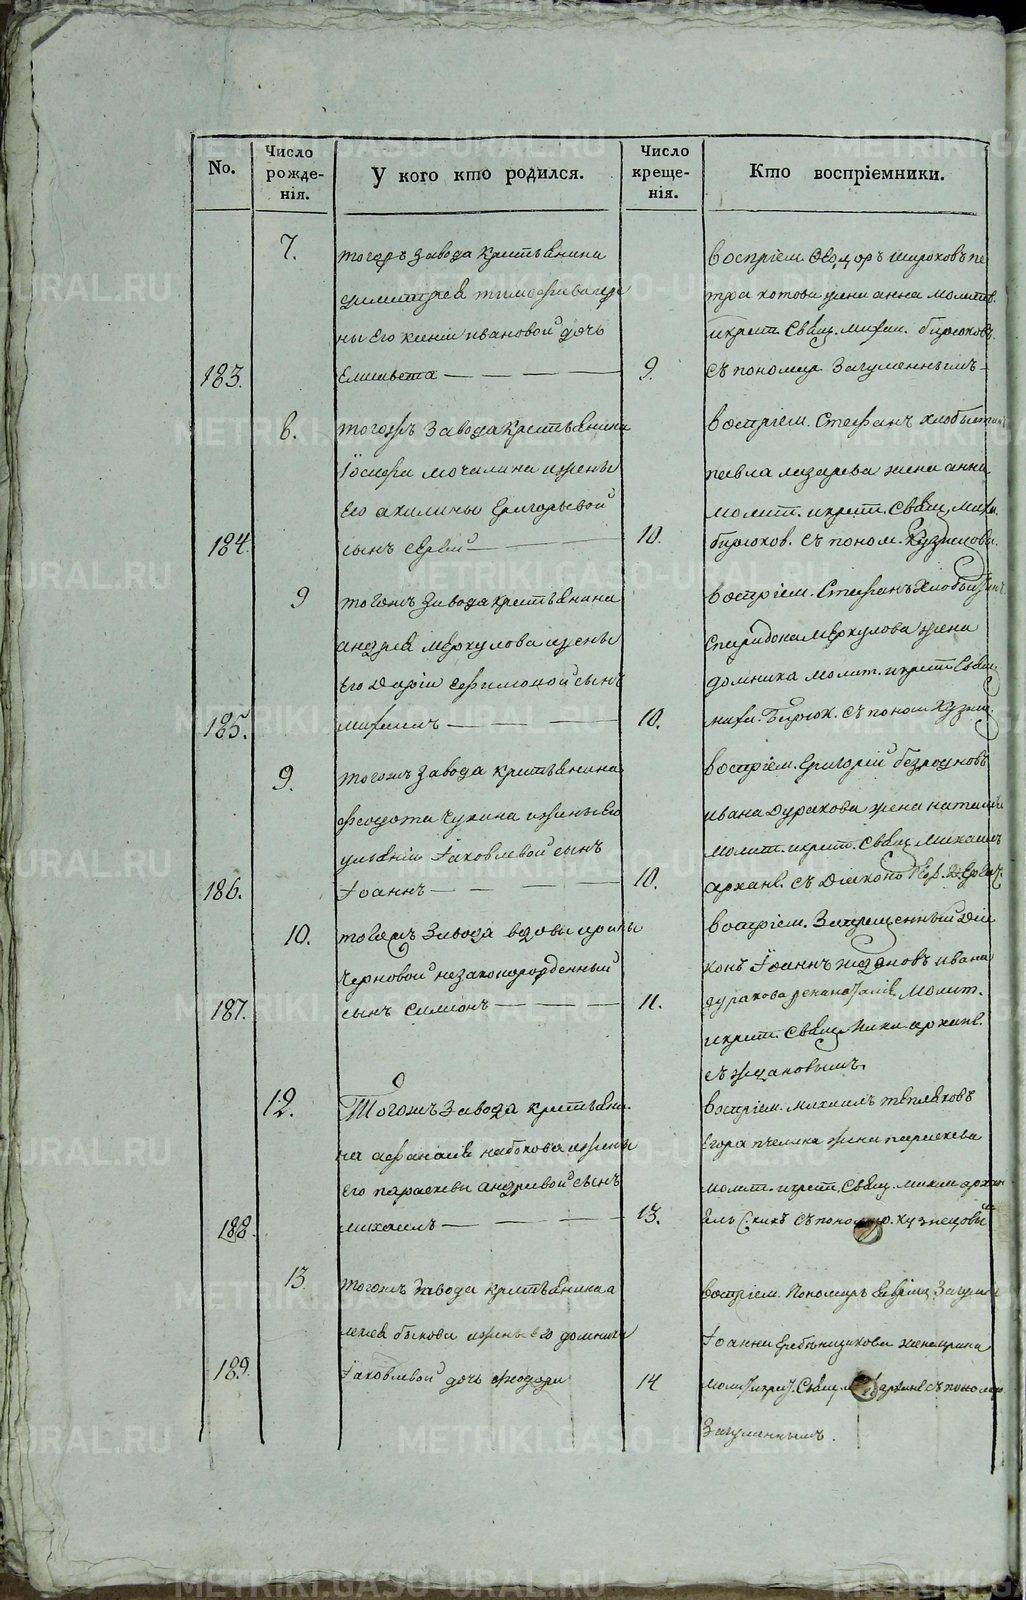 No.
Число рожде-нія.
У кого кто родился.
Число креще-нія.
Кто воспріемники.
7.
тогожъ завода крестьянина
димитрея тимофеева
ны Его ксеніи ивановой дочь
183.
Елисавета
9.
воспріем. Ѳеодоръ широковъ пе
тра котова жена анна молитв.
икрест. Свящ. михаи. бирюковъ
съ пономар. Загуменнымъ
8.
тогожъ завода крестьянина
Іосифа мочалина ижены
Его акилины Григорьевой
184.
сынъ сергей
10.
воспріем. Стефанъ
павла лазарева жена анна
молит. икрест. Свящ. миха.
бирюков. съ поном. Кузнецовы.
9
тогожъ завода крестьянина
андрея меркулова ижены
Его Даріи ефимовой сынъ
185.
михаилъ
10.
воспріем. Стефанъ
Спиридона меркулова жена
домника молит. икрест. Свящ.
миха. Бирюк. съ поном Кузне.
9.
тогожъ завода крестьянина
федота чухина ижены Его
уліаніи Іаковлевой сынъ
186.
Іоаннъ
10.
воспріем. Григорій безродновъ
ивана Дуракова жена наталья
молит. икрест. Свящ. михаилъ
арханг. съ Діакон.
10.
тогожъ завода вдовы ирины
Черновой незаконорожденный
187.
сынъ симіонъ
11.
воспріем. Запрещенный Діа
конъ Іоаннъ ждановъ ивана
дуракова жена наталія. молит.
икрест. Свящ. миха. арханг.
съ ждановымъ.
12.
Тогожъ завода крестьяни-
на афанасия набокова ижены
Его параскевы андреевой сынъ
188.
михаилъ
13.
воспріем. михаилъ тепляковъ
Егора пчелина жена параскева
молит. икрест. Свящ. михаи архан
съ пономар. кузнецовы
13
тогожъ завода крестьянина а
лексея быкова ижены его домники
189.
Іаковлевой дочь феодора
14
воспріем. Пономарь
Іоанна Гребенщикова жена ирина
Свящ. арханг съ пономар
Загуменнымъ.